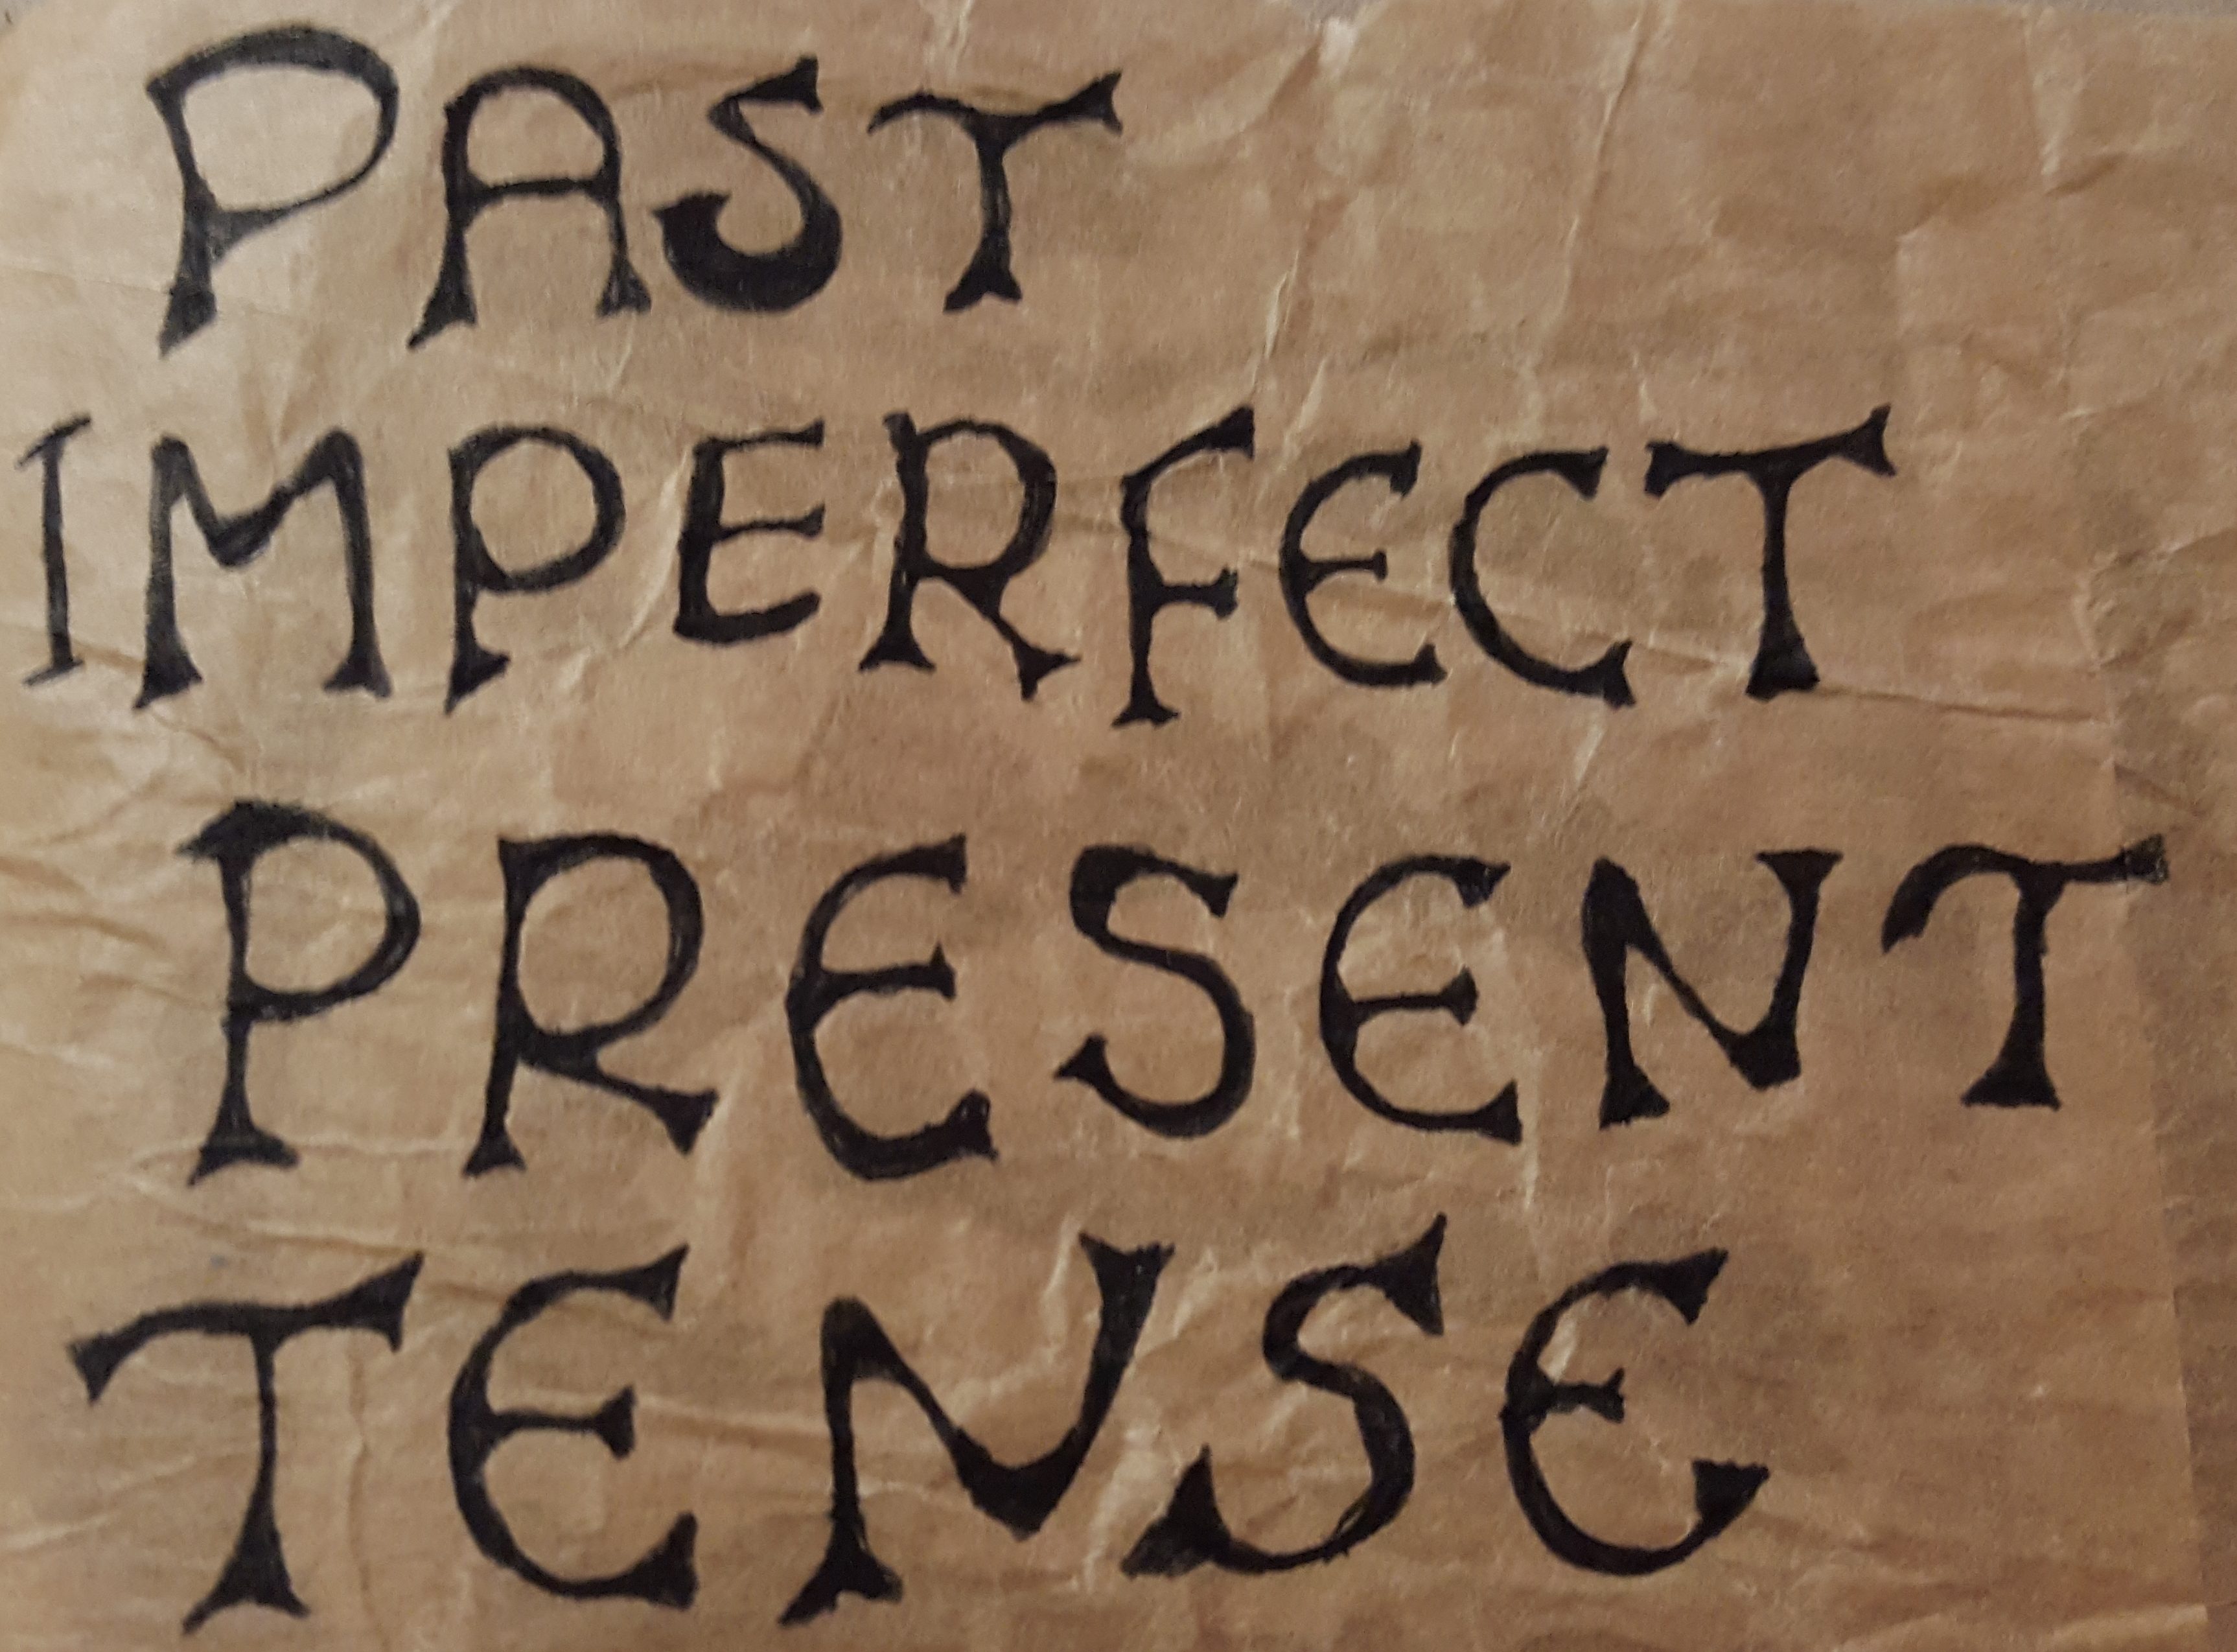 PAST
IMPERFECT
PRESENT
TENSE